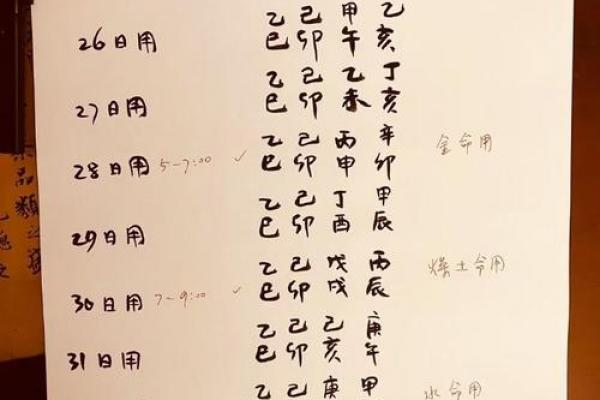 乙 己 甲 乙
26日用 巳 卯 午 亥
乙 己 乙 丁
27日用 巳 卯 未 亥
乙 己 丙 辛
28日用 5-7:00 ✓ 巳 卯 申 卯 金命用
乙 己 丁 甲
29日用 巳 卯 酉 辰
乙 己 戊 丙
30日用 7-9:00 ✓ 巳 卯 戌 辰 燥土命用
乙 己 己 庚
31日用 巳 卯 亥 午
乙 己 庚 甲 水命用
品類之盛